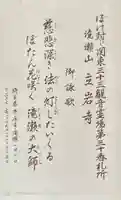 ぼけ封じ関東三十三観音霊場第三十番札所
境瀬山 立岩寺
御詠歌
慈悲深き法の灯したいくる
ぼたん花咲く滝瀬の大師